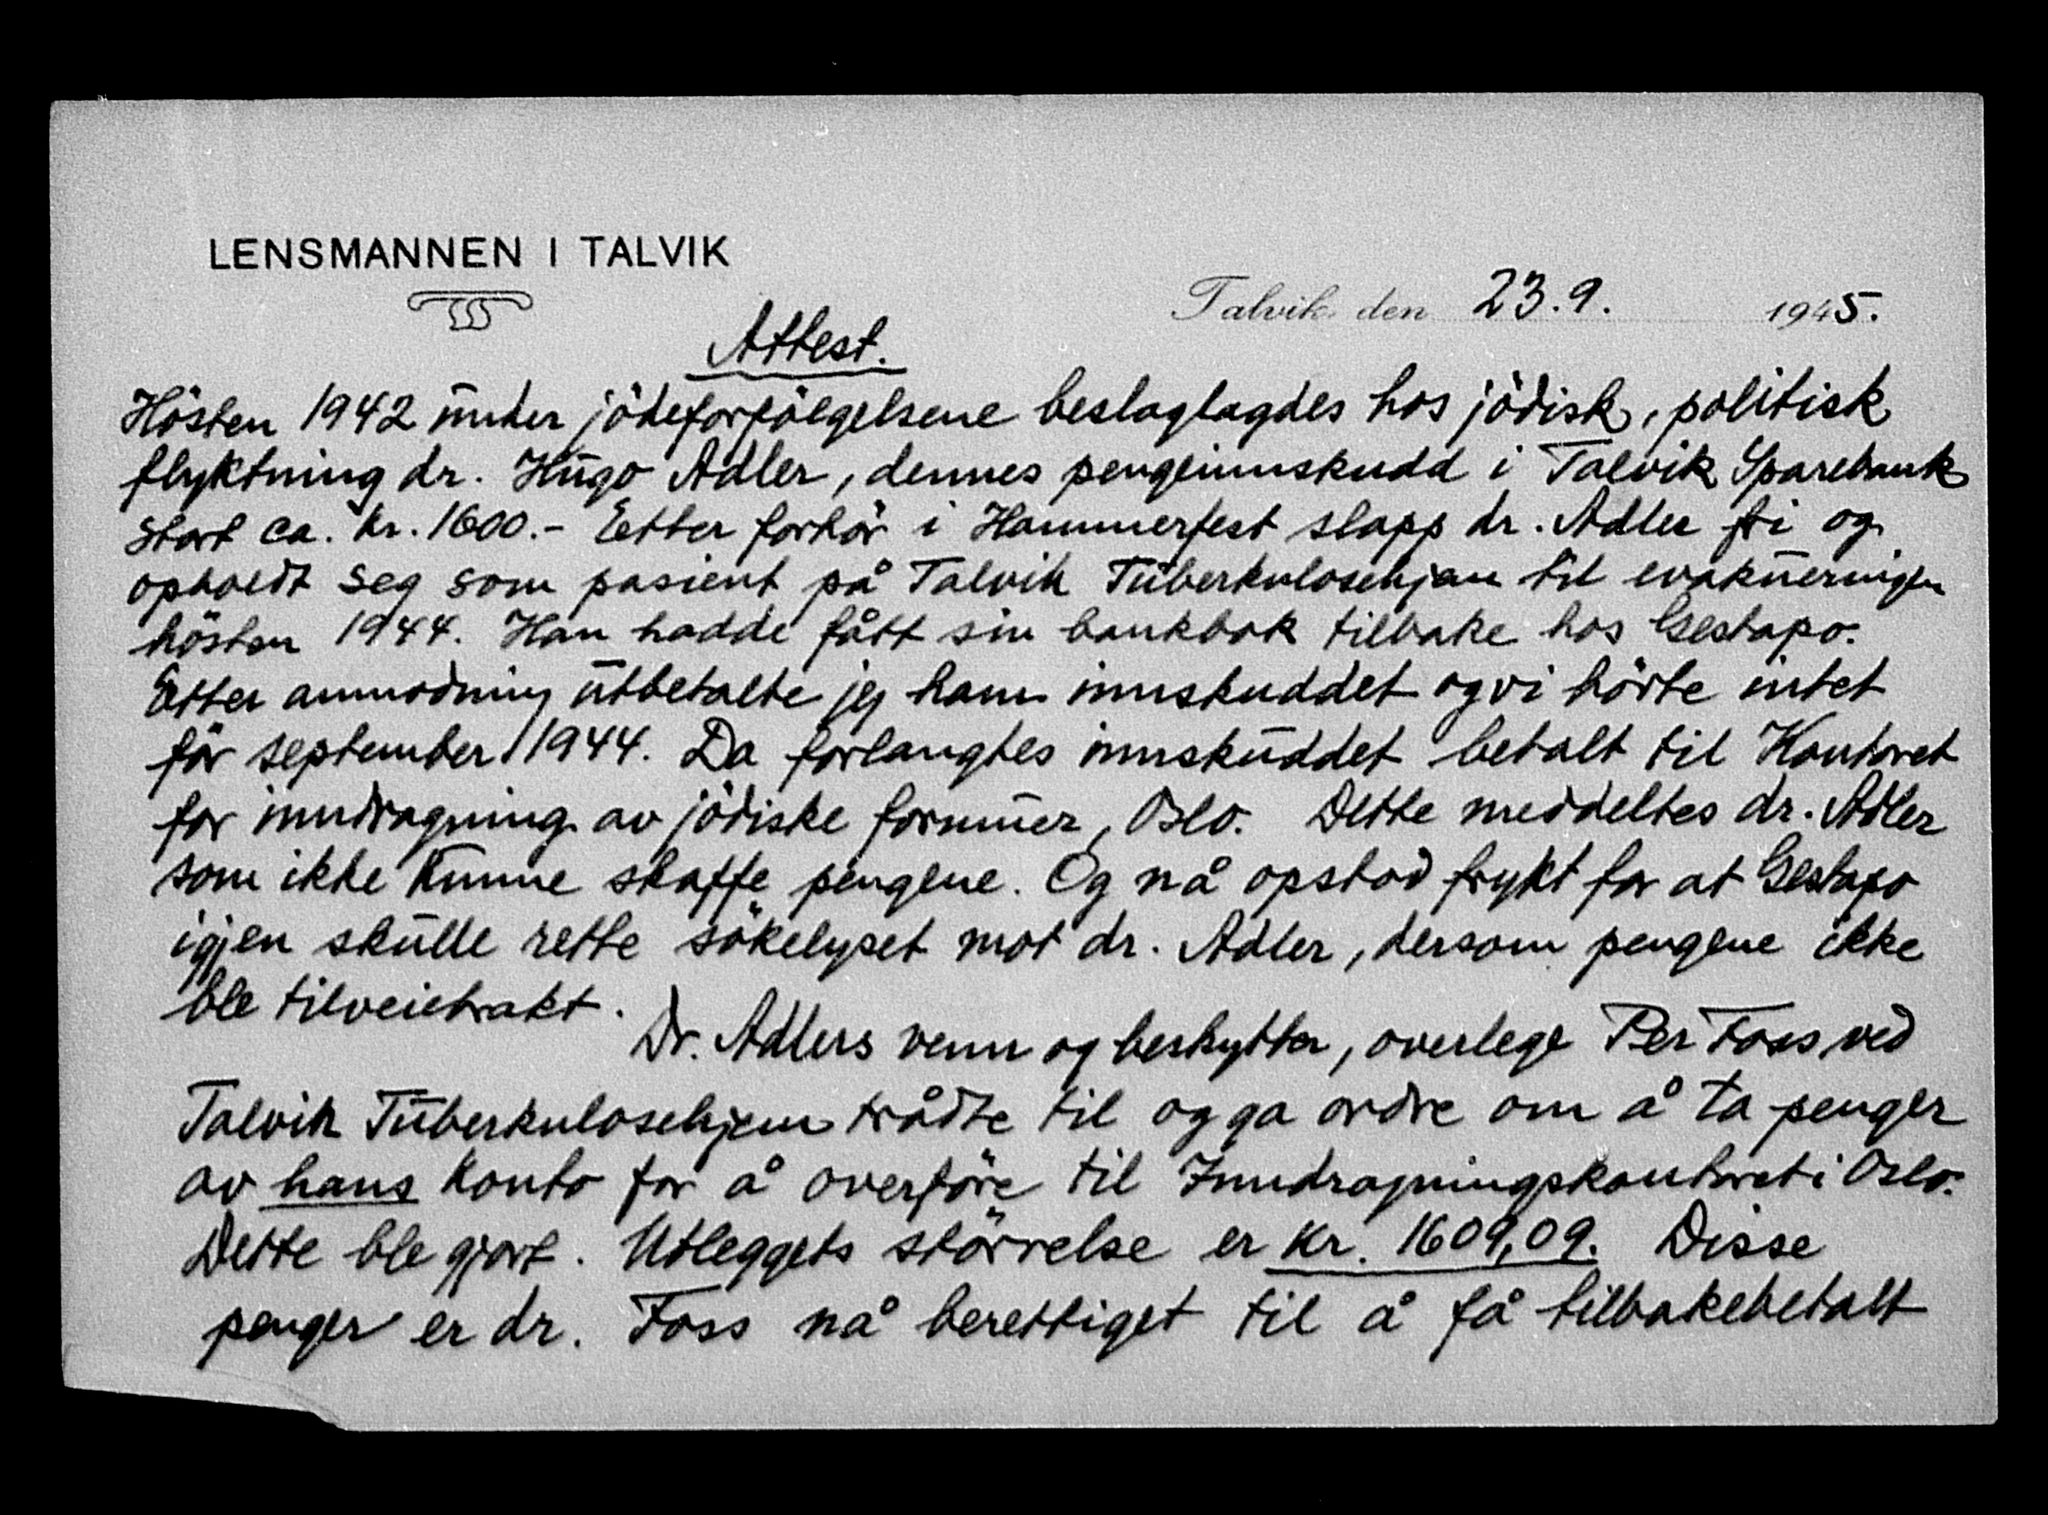 LENSMANNEN I TALVIK
Talvik den 23.9. 1945.
Attest.
Hösten 1942 under jödeforfölgelsene beslaglagdes hos jödisk, politisk
flyktning dr. Hugo Adler, dennes pengeinnskudd i Talvik Sparebank
stort ca. kr. 1600.- Etter forhör i Hammerfest slapp dr. Adler fri og
opholdt seg som pasient på Talvik Tuberkulosehjem til evakueringen
hösten 1944. Han hadde fått sin bankbok tilbake hos Gestapo.
Etter anmodning utbetalte jeg ham innskuddet og vi hörte intet
för september 1944. Da forlangtes innskuddet betalt til Kontoret
for inndragning av jödiske formuer, Oslo. Dette meddeltes dr. Adler
som ikke kunne skaffe pengene. Og nå opstod frykt for at Gestapo
igjen skulle rette sökelyset mot dr. Adler, dersom pengene ikke
ble tilveiebrakt.
Dr. Adlers venn og beskytter, overlege Per Foss ved
Talvik Tuberkulosehjem trådte til og ga ordre om å ta penger
av hans konto for å overföre til Inndragningskontoret i Oslo.
Dette ble gjort. Utleggets störrelse er kr. 1609,09. Disse
penger er dr. Foss nå berettiget til å få tilbakebetalt